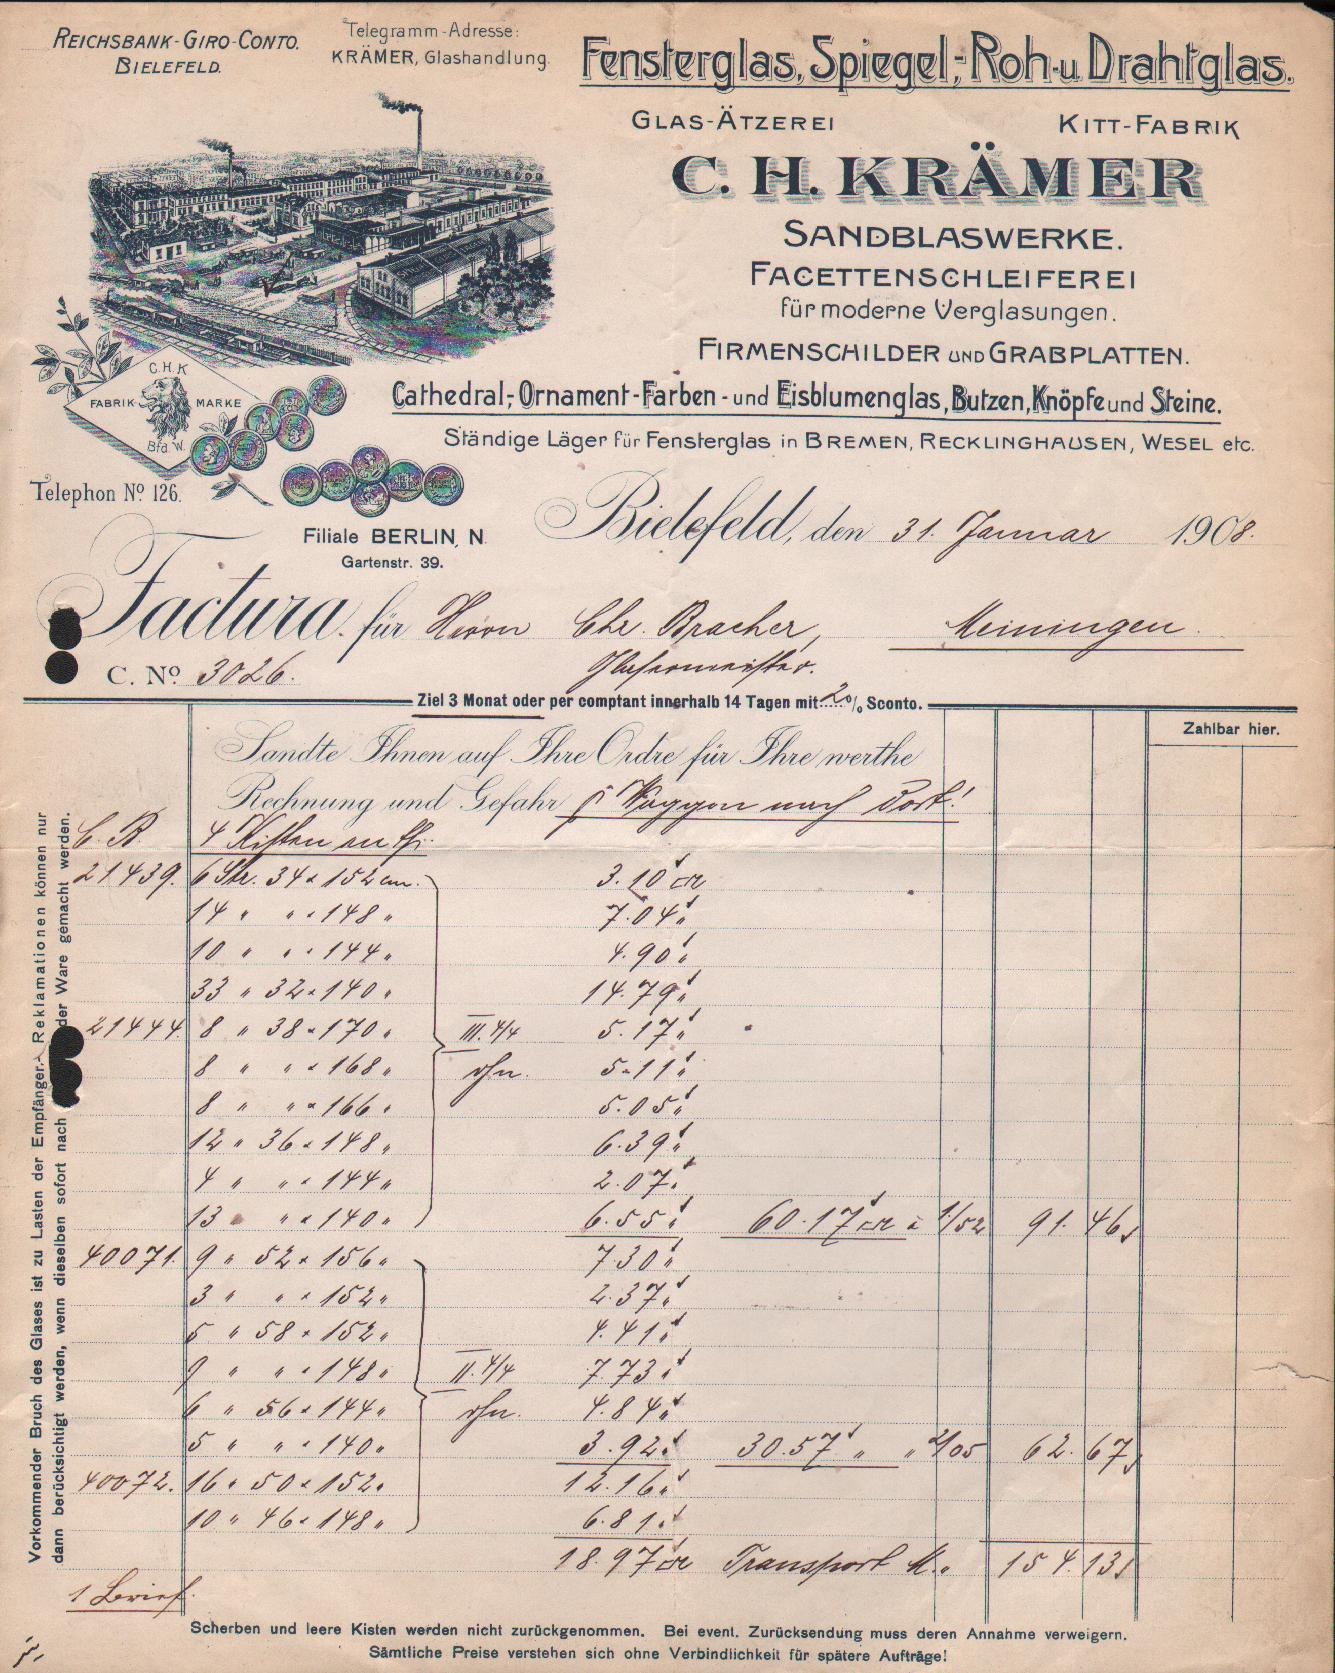 REICHSBANK-GIRO-CONTO.
BIELEFELD.
Telegramm-Adresse:
KRÄMER, Glashandlung.
Fensterglas, Spiegel-, Roh- u. Drahtglas.
GLAS-ÄTZEREI KITT-FABRIK
C. H. KRÄMER
SANDBLASWERKE.
FACETTENSCHLEIFEREI
für moderne Verglasungen.
FIRMENSCHILDER UND GRABPLATTEN.
Cathedral-, Ornament-Farben- und Eisblumenglas, Butzen, Knöpfe und Steine.
Ständige Läger für Fensterglas in BREMEN, RECKLINGHAUSEN, WESEL etc.
C.H.K
FABRIK MARKE
Bfd W.
Telephon No. 126.
Filiale BERLIN, N
Gartenstr. 39.
Bielefeld, den 31. Januar 1908.
Factura für Herrn Chr. Bracher, Meiningen.
Glasermeister.
C. No. 3026.
Ziel 3 Monat oder per comptant innerhalb 14 Tagen mit 2% Sconto.
Zahlbar hier.
Sandte Ihnen auf Ihre Ordre für Ihre werthe
Rechnung und Gefahr p Waggon nach dort!
C. B. 4 Kisten enth.
21439. 6 Str. 34 x 152 cm. 3.10
14 " " x 148 " 7.04 "
10 " " x 144 " 4.90 "
33 " 32 x 140 " 14.79 "
21444 8 " 38 x 170 " III. 4/4 5.17 "
8 " " x 168 " rhn. 5.11 "
8 " " x 166 " 5.05 "
12 " 36 x 148 " 6.39 "
4 " " x 144 " 2.07 "
13 " " x 140 " 6.55 " 60.17 à 1/52 91. 46
40071. 9 " 52 x 156 " 7.30 "
3 " " x 152 " 2.37 "
5 " 58 x 152 " 4.41 "
9 " " x 148 " II. 4/4 7.73 "
6 " 56 x 144 " rhn. 4.84 "
5 " " x 140 " 3.92 " 30.57 " " 2/05 62. 67
40072. 16 " 50 x 152 " 12.16 "
10 " 46 x 148 " 6.81 "
18.97 Transport M. 154. 13
1 Brief.
Vorkommender Bruch des Glases ist zu Lasten der Empfänger. Reklamationen können nur
dann berücksichtigt werden, wenn dieselben sofort nach der Ware gemacht werden.
Scherben und leere Kisten werden nicht zurückgenommen. Bei event. Zurücksendung muss deren Annahme verweigern.
Sämtliche Preise verstehen sich ohne Verbindlichkeit für spätere Aufträge!